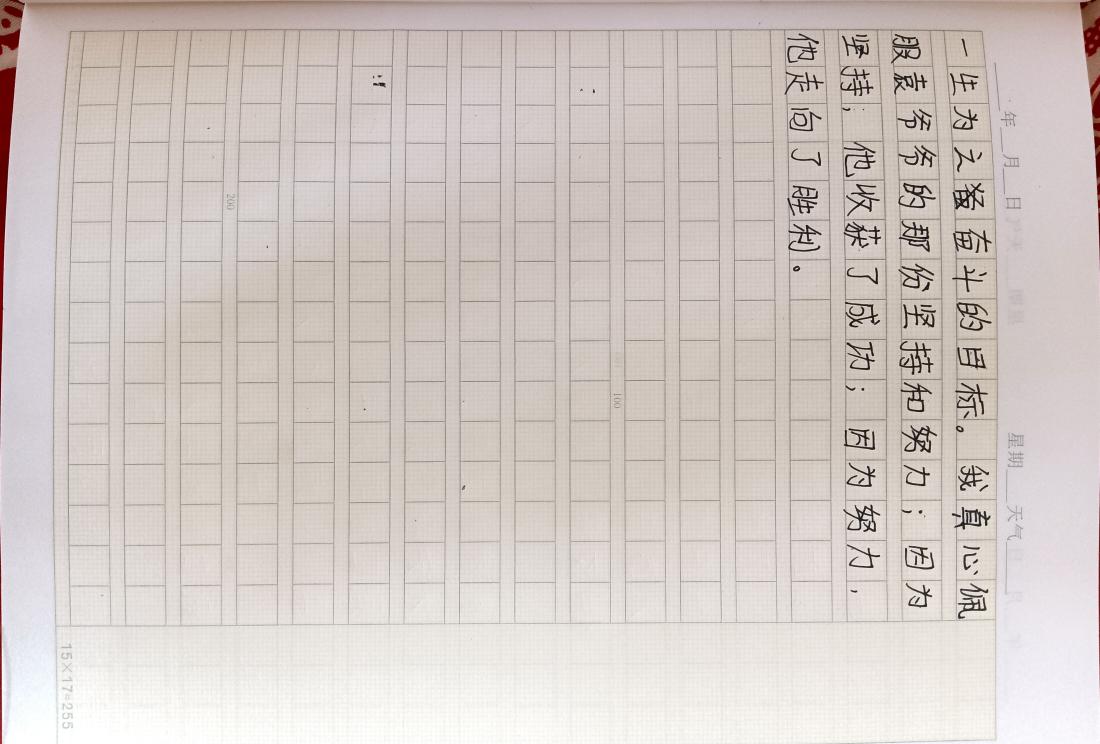 年 月 日 星期 天气
一生为之奋斗的目标。我真心佩
服袁爷爷的那份坚持和努力；因为
坚持；他收获了成功；因为努力，
他走向了胜利。
100
200
15×17=255